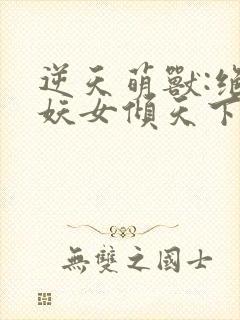 逆天萌獸:絕
妖女傾天下
無雙之國士